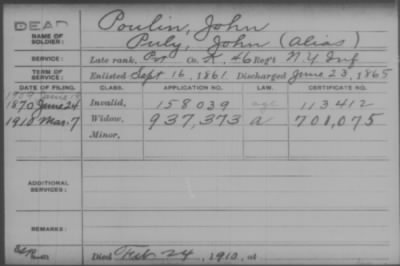 DEAD
NAME OF SOLDIER: Poulin, John
Puly, John (Alias)
SERVICE: Late rank, Pvt Co. K, 46 Reg't N.Y. Inf
TERM OF SERVICE: Enlisted Sept 16, 1861. Discharged June 23, 1865
DATE OF FILING. CLASS. APPLICATION NO. LAW. CERTIFICATE NO.
1870 June 24 Invalid, 158039 113412
1910 Mar. 7 Widow, 937,373 a 701,075
Minor,
ADDITIONAL SERVICES:
REMARKS:
Died Feb 24, 1910, at